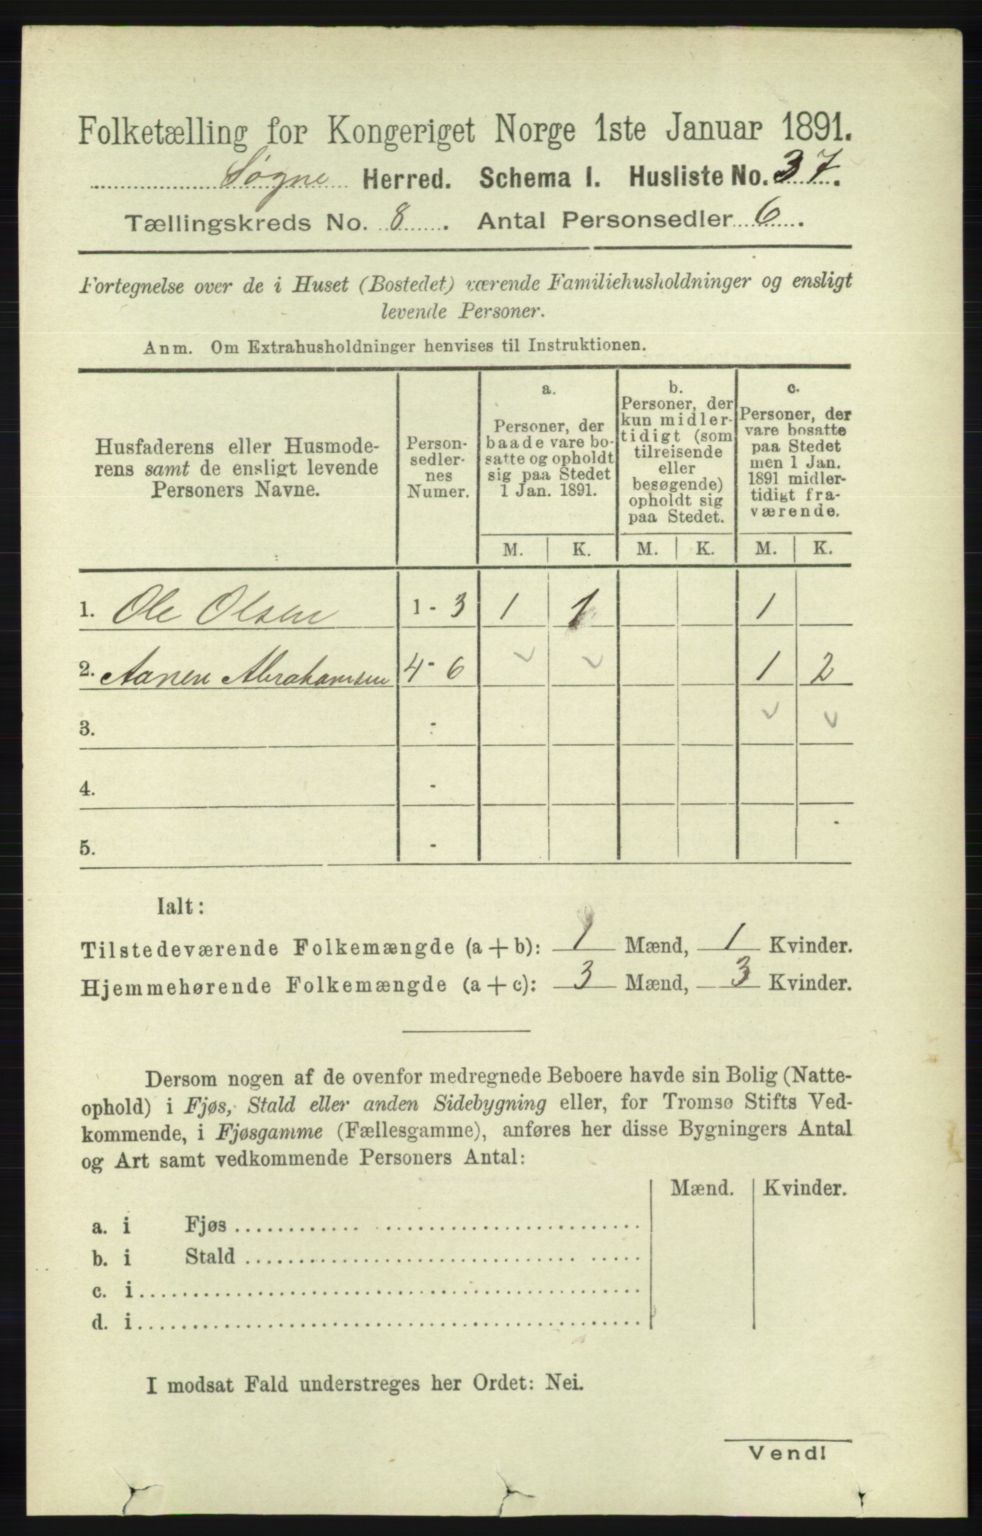 Folketælling for Kongeriget Norge 1ste Januar 1891.
Søgne Herred. Schema I. Husliste No. 37.
Tællingskreds No. 8. Antal Personsedler 6.
Fortegnelse over de i Huset (Bostedet) værende Familiehusholdninger og ensligt
levende Personer.
Anm. Om Extrahusholdninger henvises til Instruktionen.
Husfaderens eller Husmode-
rens samt de ensligt levende
Personers Navne.
Person-
sedler-
nes
Numer.
a.
Personer, der
baade vare bo-
satte og opholdt
sig paa Stedet
1 Jan. 1891.
b.
Personer, der
kun midler-
tidigt (som
tilreisende
eller
besøgende)
opholdt sig
paa Stedet.
c.
Personer, der
vare bosatte
paa Stedet
men 1 Jan.
1891 midler-
tidigt fra-
værende.
M. K. M. K. M. K.
1. Ole Olsen 1 - 3 1 1 1
2. Aanen Abrahamsen 4 - 6 1 2
3. -
4. -
5. -
Ialt:
Tilstedeværende Folkemængde (a+b): 1 Mænd, 1 Kvinder.
Hjemmehørende Folkemængde (a+c): 3 Mænd, 3 Kvinder.
Dersom nogen af de ovenfor medregnede Beboere havde sin Bolig (Natte-
ophold) i Fjøs, Stald eller anden Sidebygning eller, for Tromsø Stifts Ved-
kommende, i Fjøsgamme (Fællesgamme), anføres her disse Bygningers Antal
og Art samt vedkommende Personers Antal:
Mænd. Kvinder.
a. i Fjøs
b. i Stald
c. i
d. i
I modsat Fald understreges her Ordet: Nei.
Vend!